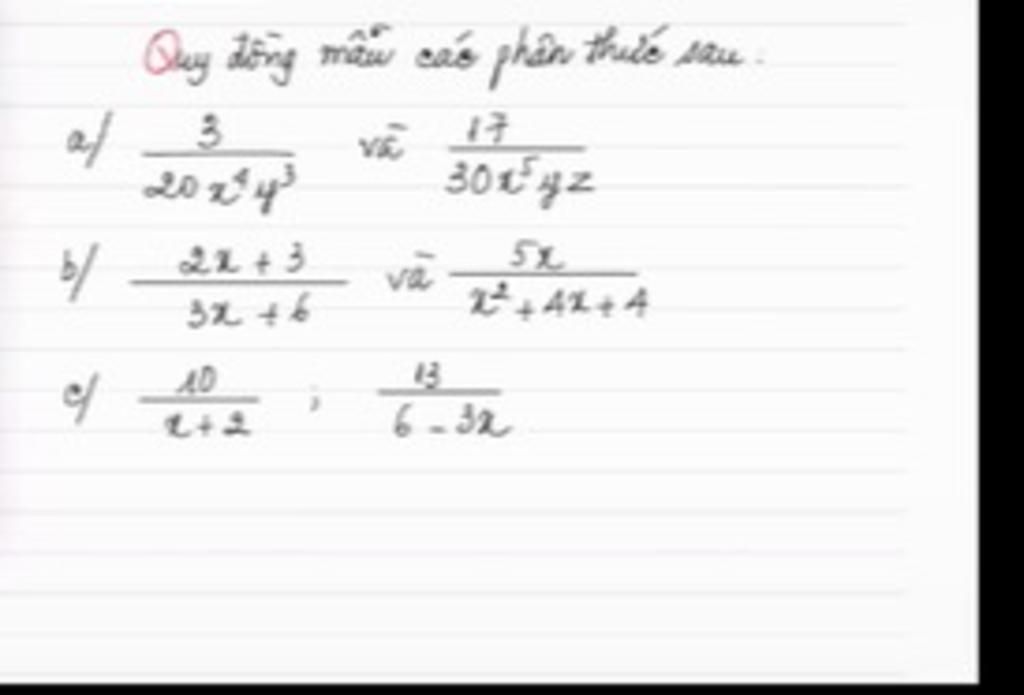 Quy đồng mẫu các phân thức sau:
a/ 3/(20x⁴y³) và 17/(30x⁵yz)
b/ (2x + 3)/(3x + 6) và 5x/(x² + 4x + 4)
c/ 10/(x + 2) ; 13/(6 - 3x)